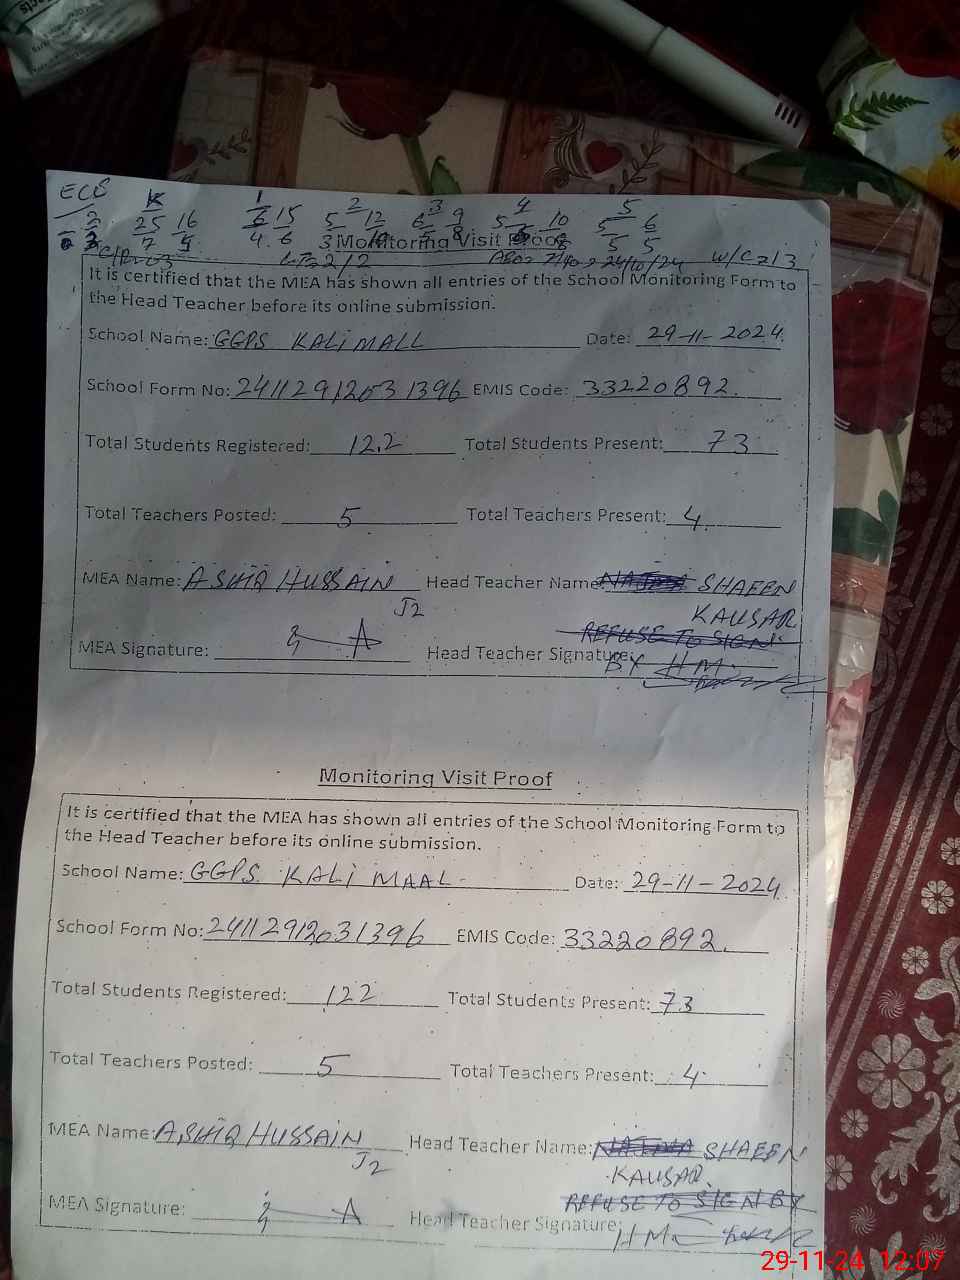 ECE
Monitoring Visit Proof
w/c 2/3
It is certified that the MEA has shown all entries of the School Monitoring Form to
the Head Teacher before its online submission.
School Name: GGPS KALIMALL Date: 29-11-2024
School Form No: 24112912031396 EMIS Code: 33220892.
Total Students Registered: 122 Total Students Present: 73
Total Teachers Posted: 5 Total Teachers Present: 4
MEA Name: ASHIQ HUSSAIN Head Teacher Name: SHAEEN
J2 KAUSAR
REFUSE TO SIGN
MEA Signature: Head Teacher Signature:
BY HM
Monitoring Visit Proof
It is certified that the MEA has shown all entries of the School Monitoring Form to
the Head Teacher before its online submission.
School Name: GGPS KALI MAAL Date: 29-11-2024
School Form No: 24112912031396 EMIS Code: 33220892.
Total Students Registered: 122 Total Students Present: 73
Total Teachers Posted: 5 Total Teachers Present: 4
MEA Name: ASHIQ HUSSAIN Head Teacher Name: SHAEEN
J2 KAUSAR
REFUSE TO SIGN BY
MEA Signature: Head Teacher Signature:
HM
29-11-24 12:07